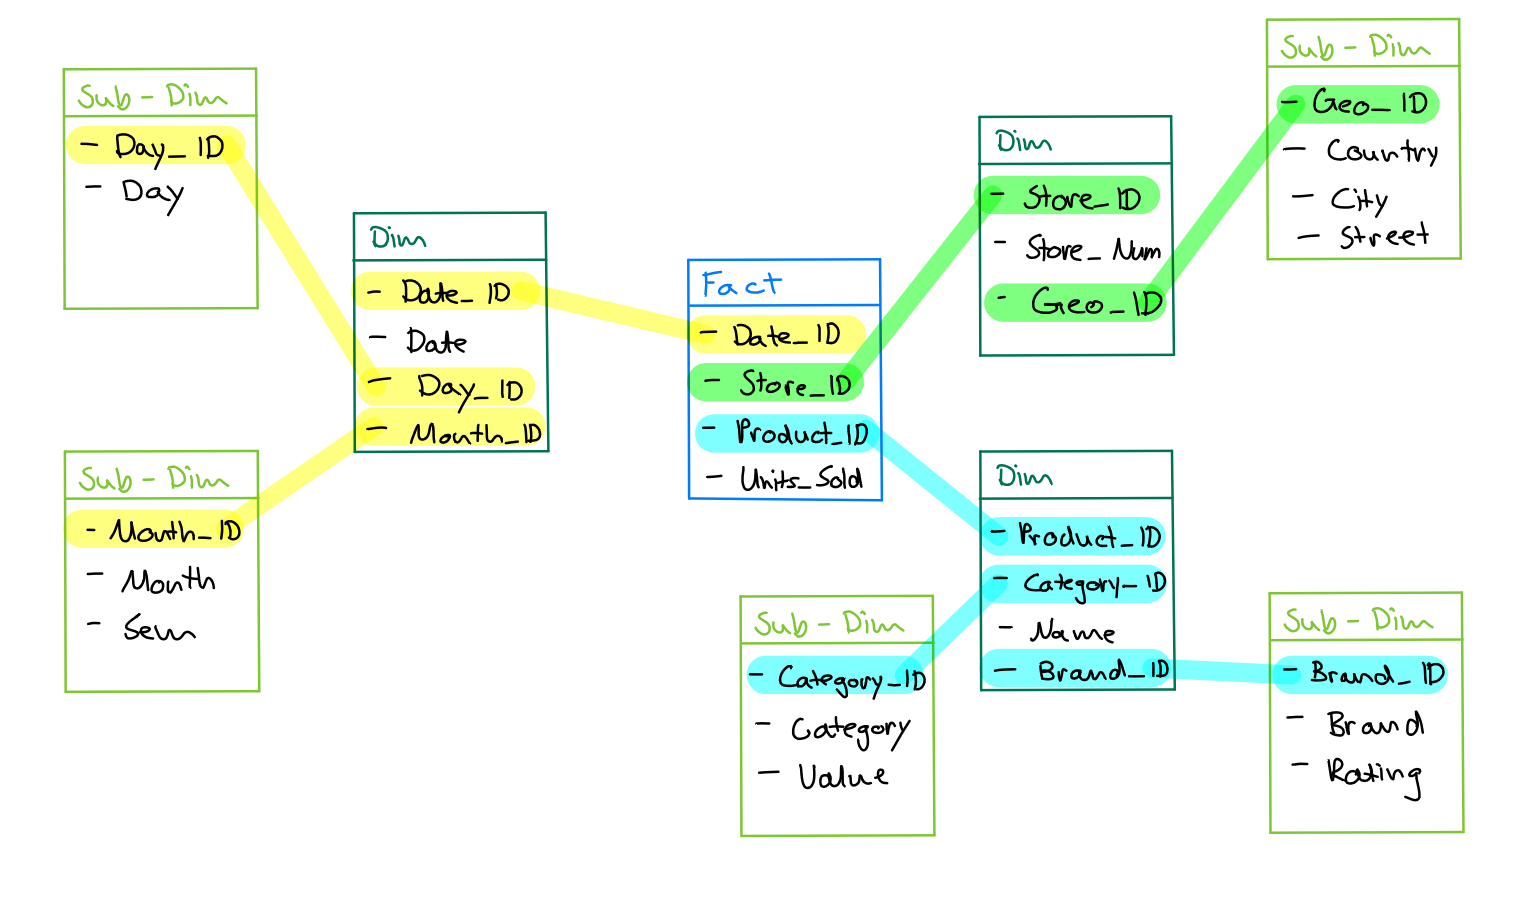 Sub - Dim
- Day_ID
- Day
Sub - Dim
- Month_ID
- Month
- Sem
Dim
- Date_ID
- Date
- Day_ID
- Month_ID
Fact
- Date_ID
- Store_ID
- Product_ID
- Units_Sold
Dim
- Store_ID
- Store_Num
- Geo_ID
Sub - Dim
- Geo_ID
- Country
- City
- Street
Dim
- Product_ID
- Category_ID
- Name
- Brand_ID
Sub - Dim
- Category_ID
- Category
- Value
Sub - Dim
- Brand_ID
- Brand
- Rating